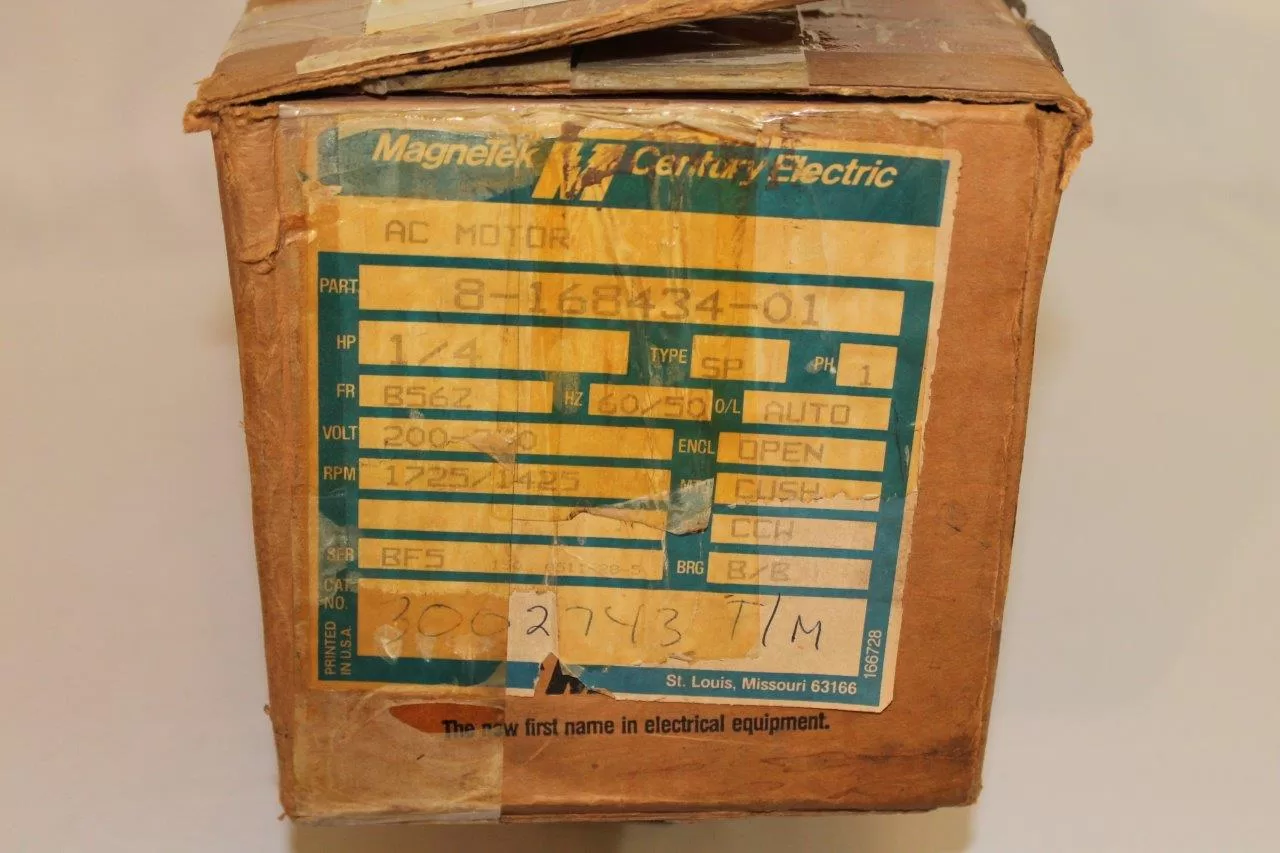 MagneTek Century Electric
AC MOTOR
PART 8-168434-01
HP 1/4 TYPE SP PH 1
FR B56Z HZ 60/50 O/L AUTO
VOLT ENCL OPEN
RPM 1725/1425 CUSH
CCW
SER BF5 BRG B/B
CAT. NO. 3002743 T/M
PRINTED IN U.S.A.
166728
St. Louis, Missouri 63166
The new first name in electrical equipment.